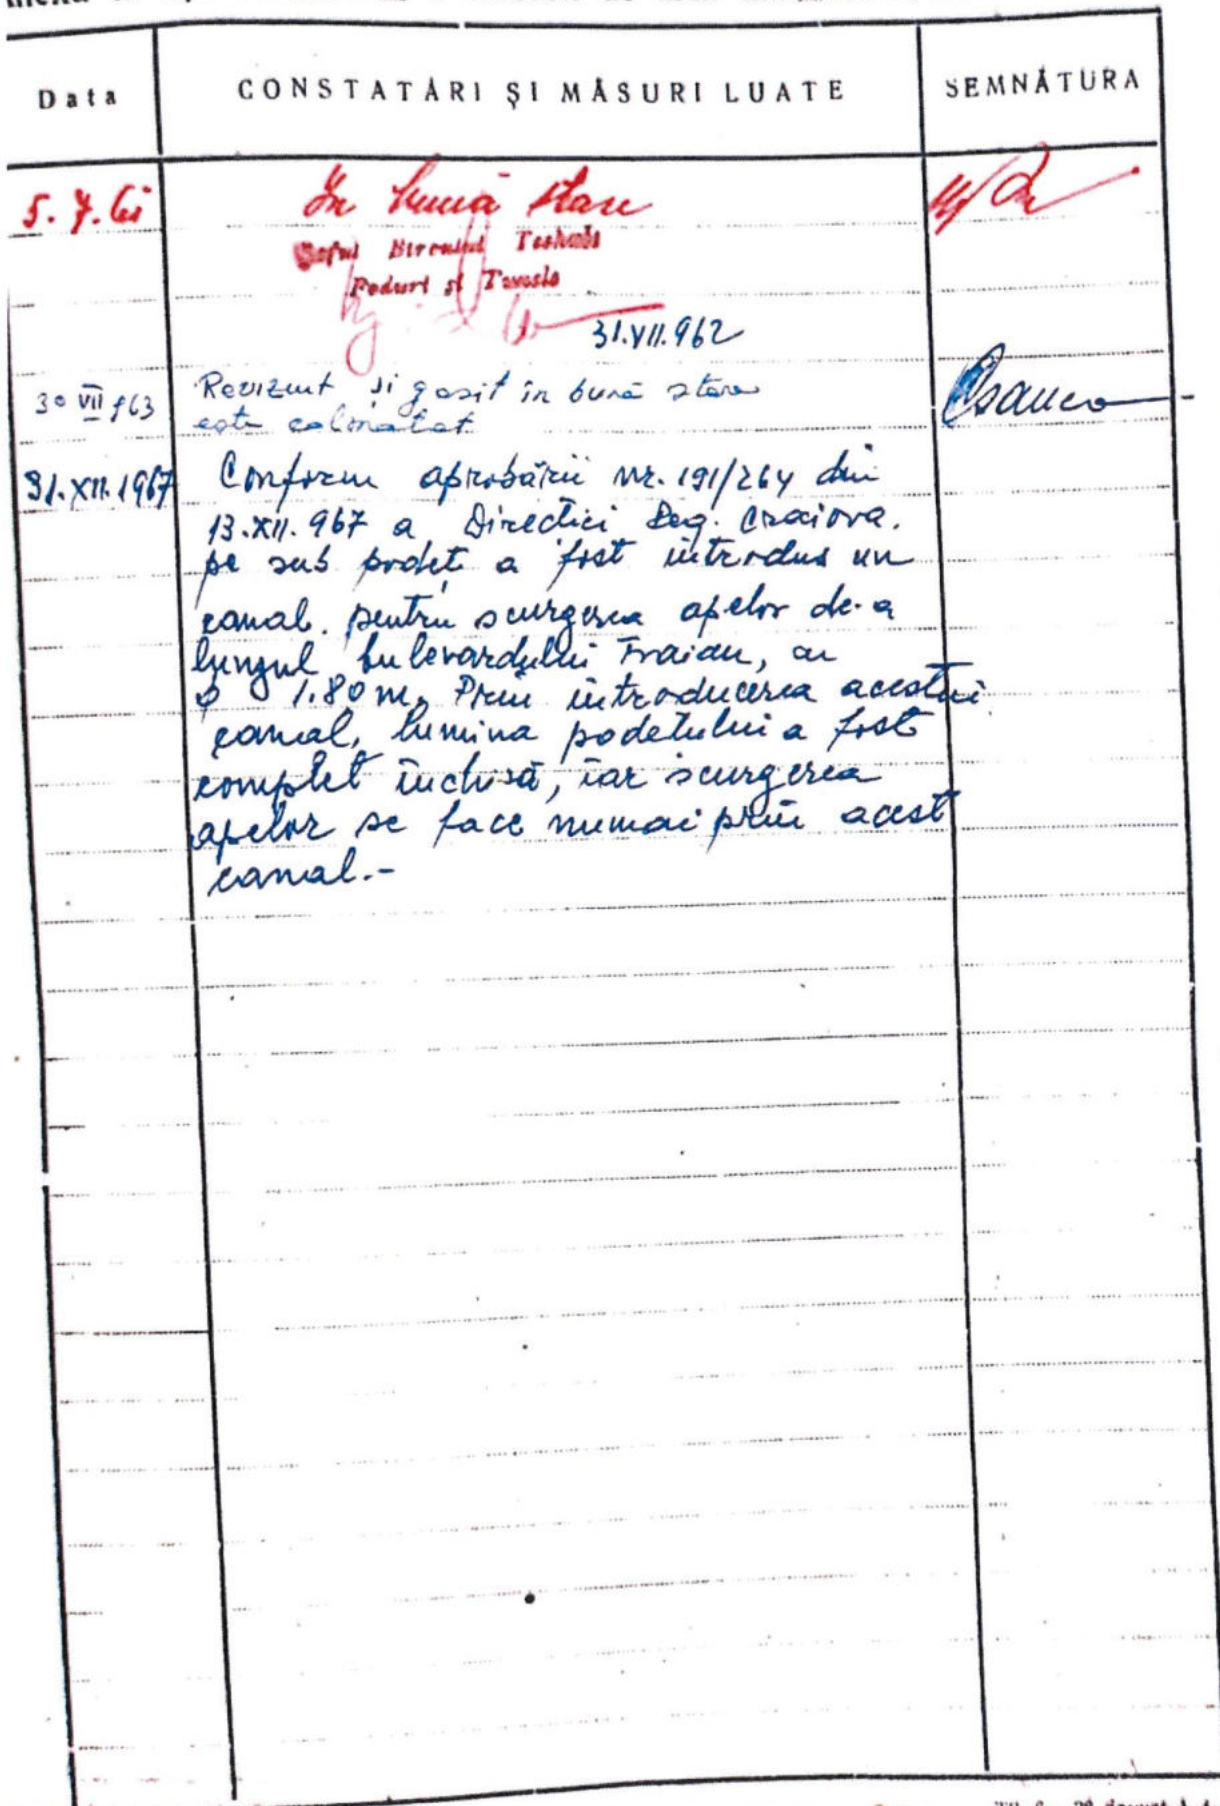 Data CONSTATĂRI ȘI MĂSURI LUATE SEMNĂTURA
5.7.61 În bună stare
Șeful Biroului Tehnic
Poduri și Terasie
31.VII.962
30 VII 963 Revizuit și gasit în bună stare
este colmatat
31.XII.1967 Conform aprobării nr. 191/264 din
13.XII.967 a Direcției Reg. Craiova.
pe sub podeț a fost introdus un
canal. pentru scurgerea apelor de-a
lungul bulevardului Traian, cu
φ 1.80 m. Prin introducerea acestui
canal, lumina podetului a fost
complet închisă, iar scurgerea
apelor se face numai prin acest
canal.-